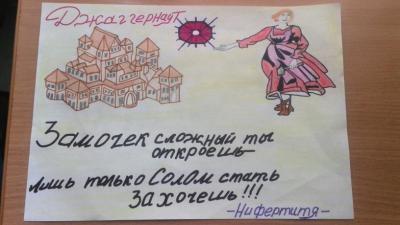 Джаггернаут
Замочек сложный ты
откроешь
лишь только Солом стать
захочешь!!!
-Нифертитя-